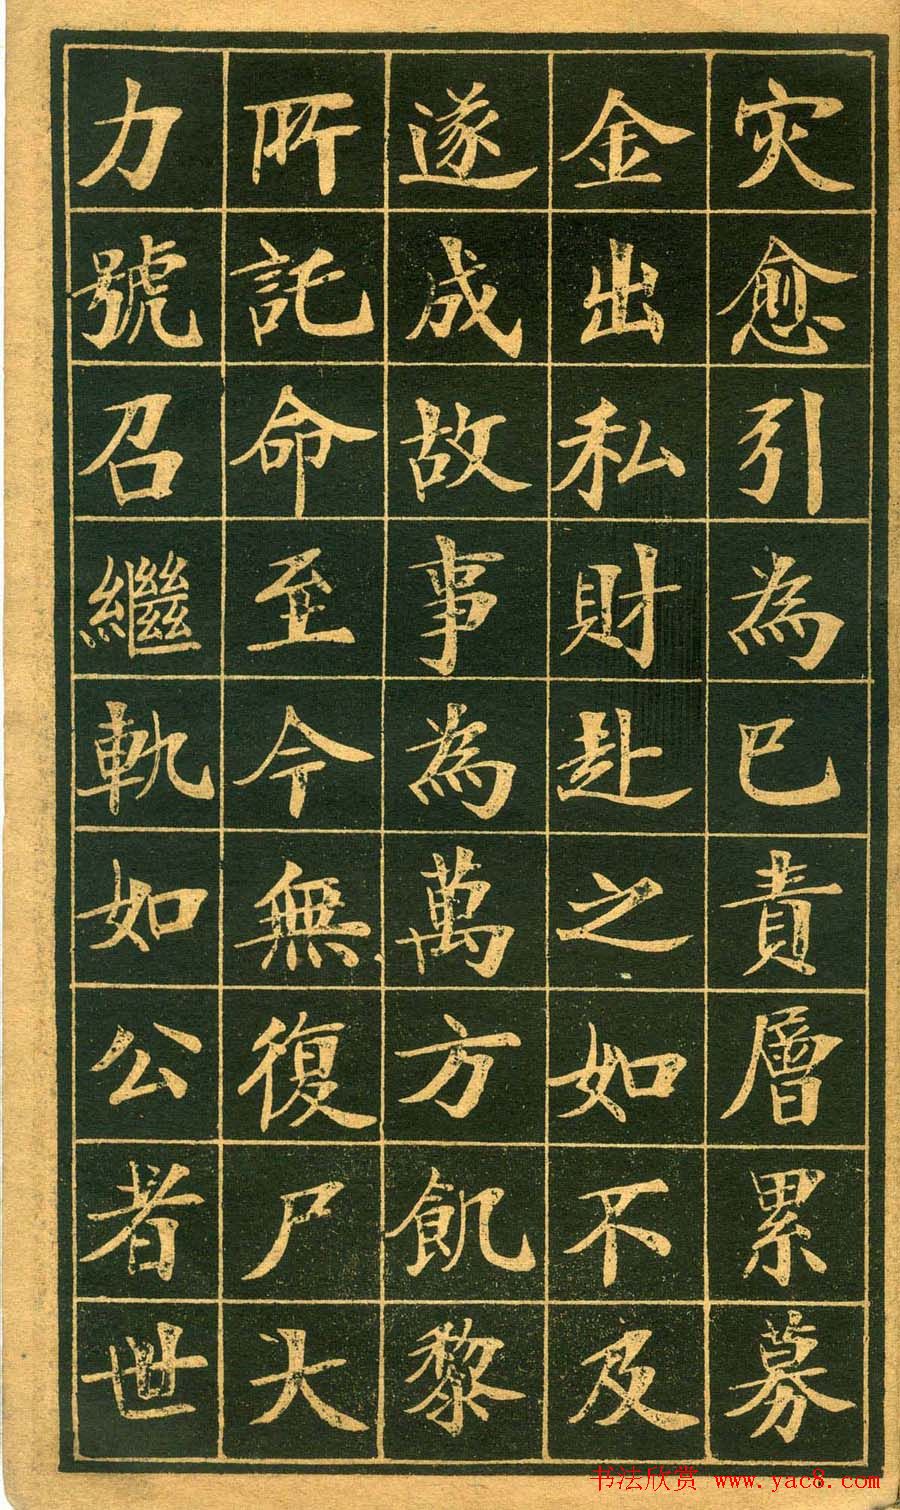 灾愈引為已責層累募
金出私財赴之如不及
遂成故事為萬方飢黎
所託命至今無復尸大
力號召繼軌如公者世
书法欣赏 www.yac8.com